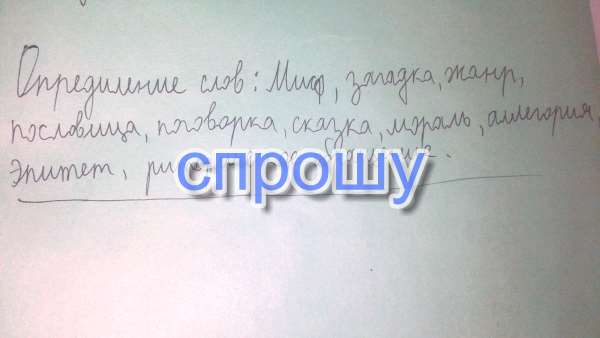 Определение слов: Миф, загадка, жанр,
пословица, поговорка, сказка, мораль, аллегория,
эпитет,
спрошу